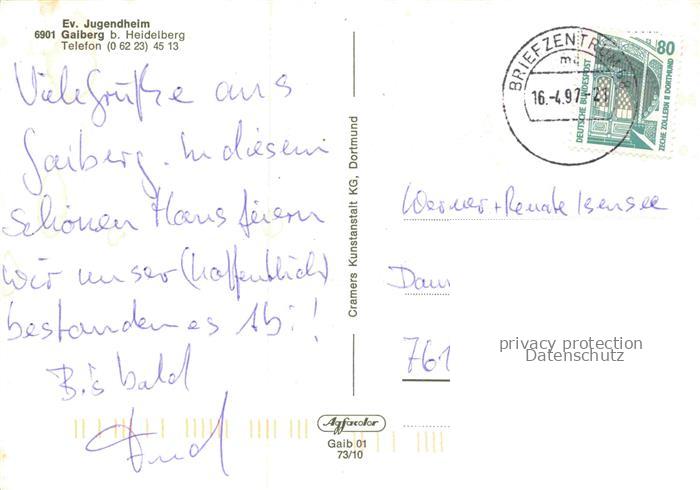 Ev. Jugendheim
6901 Gaiberg b. Heidelberg
Telefon (0 62 23) 45 13
Viele Grüße aus
Gaiberg. In diesem
schönen Haus feiern
wir unser (hoffentlich)
bestandenes Abi!
Bis bald
Cramers Kunstanstalt KG, Dortmund
Agfacolor
Gaib 01
73/10
BRIEFZENTRUM
16.-4.97-21
80
DEUTSCHE BUNDESPOST
ZECHE ZOLLERN II DORTMUND
Werner + Renate Isensee
761
privacy protection
Datenschutz